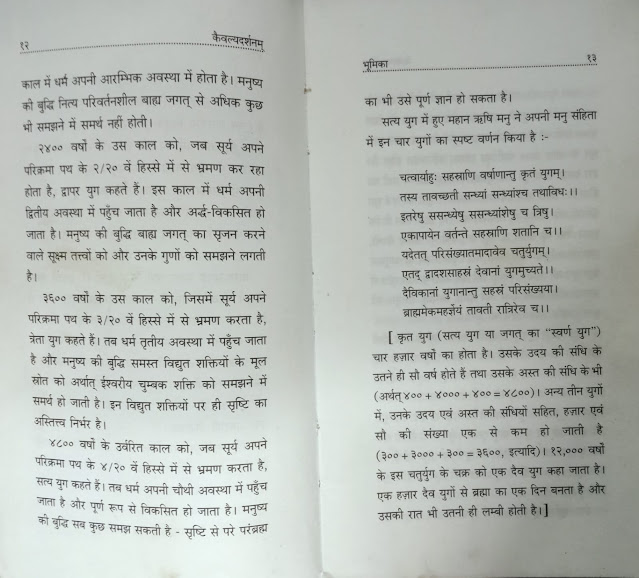 १२ कैवल्यदर्शनम्
काल में धर्म अपनी आरम्भिक अवस्था में होता है। मनुष्य
की बुद्धि नित्य परिवर्तनशील बाह्य जगत् से अधिक कुछ
भी समझने में समर्थ नहीं होती।
२४०० वर्षों के उस काल को, जब सूर्य अपने
परिक्रमा पथ के २/२० वें हिस्से में से भ्रमण कर रहा
होता है, द्वापर युग कहते हैं। इस काल में धर्म अपनी
द्वितीय अवस्था में पहुँच जाता है और अर्द्ध-विकसित हो
जाता है। मनुष्य की बुद्धि बाह्य जगत् का सृजन करने
वाले सूक्ष्म तत्त्वों को और उनके गुणों को समझने लगती
है।
३६०० वर्षों के उस काल को, जिसमें सूर्य अपने
परिक्रमा पथ के ३/२० वें हिस्से में से भ्रमण करता है,
त्रेता युग कहते हैं। तब धर्म तृतीय अवस्था में पहुँच जाता
है और मनुष्य की बुद्धि समस्त विद्युत शक्तियों के मूल
स्रोत को अर्थात् ईश्वरीय चुम्बक शक्ति को समझने में
समर्थ हो जाती है। इन विद्युत शक्तियों पर ही सृष्टि का
अस्तित्त्व निर्भर है।
४८०० वर्षों के उर्वरित काल को, जब सूर्य अपने
परिक्रमा पथ के ४/२० वें हिस्से में से भ्रमण करता है,
सत्य युग कहते हैं। तब धर्म अपनी चौथी अवस्था में पहुँच
जाता है और पूर्ण रूप से विकसित हो जाता है। मनुष्य
की बुद्धि सब कुछ समझ सकती है - सृष्टि से परे परंब्रह्म
भूमिका १३
का भी उसे पूर्ण ज्ञान हो सकता है।
सत्य युग में हुए महान ऋषि मनु ने अपनी मनु संहिता
में इन चार युगों का स्पष्ट वर्णन किया है :-
चत्वार्याहुः सहस्राणि वर्षाणान्तु कृतं युगम्।
तस्य तावच्छती सन्ध्यां सन्ध्यांश्च तथाविधः।।
इतरेषु ससन्ध्येषु ससन्ध्यांशेषु च त्रिषु।
एकापायेन वर्तन्ते सहस्राणि शतानि च।।
यदेतत् परिसंख्यातमादावेव चतुर्युगम्।
एतद् द्वादशसाहस्रं देवानां युगमुच्यते।।
दैविकानां युगानान्तु सहस्रं परिसंख्यया।
ब्राह्ममेकमहर्ज्ञेयं तावती रात्रिरेव च।।
[ कृत युग (सत्य युग या जगत् का “स्वर्ण युग”)
चार हज़ार वर्षों का होता है। उसके उदय की संधि के
उतने ही सौ वर्ष होते हैं तथा उसके अस्त की संधि के भी
(अर्थात् ४०० + ४००० + ४०० = ४८००)। अन्य तीन युगों
में, उनके उदय एवं अस्त की संधियों सहित, हज़ार एवं
सौ की संख्या एक से कम हो जाती है
(३०० + ३००० + ३०० = ३६००, इत्यादि)। १२,००० वर्षों
के इस चतुर्युग के चक्र को एक देव युग कहा जाता है।
एक हज़ार देव युगों से ब्रह्मा का एक दिन बनता है और
उसकी रात भी उतनी ही लम्बी होती है।]